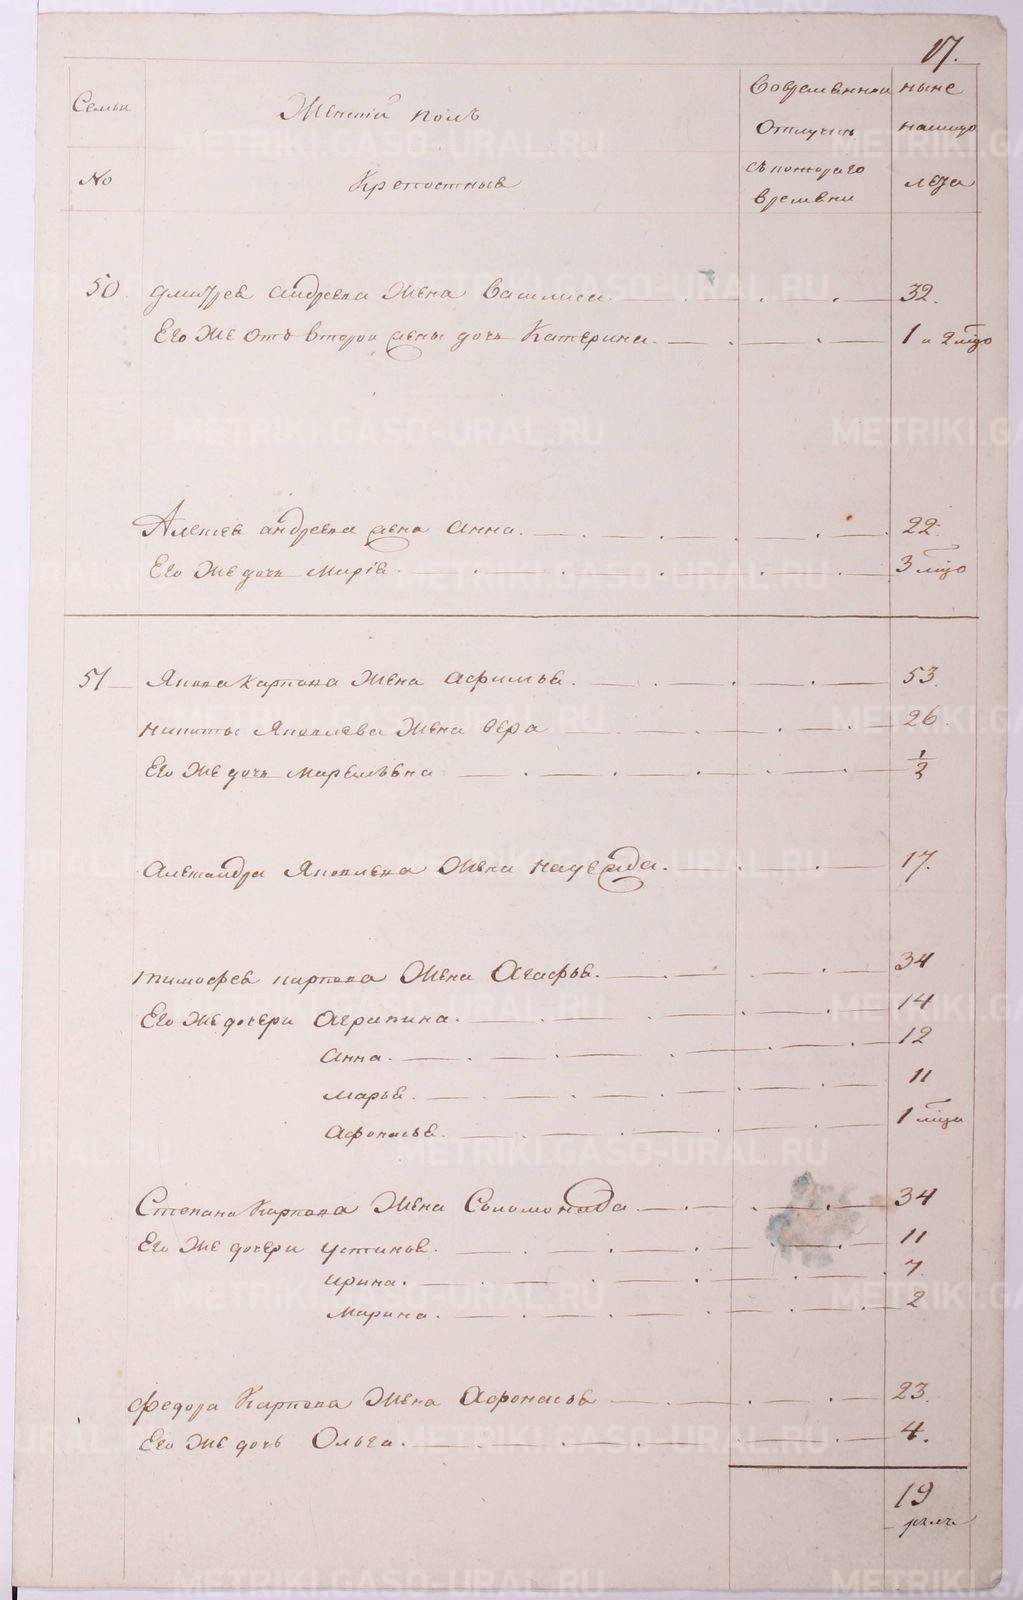 17.
Семьи
Женскій полъ
Во временной
отлучкѣ
ныне
налицо
No
Крепостные
съ котораго
времени
лета
50. Дмитрея Андреева жена Василиса. 32.
Его же отъ второй жены дочь Катерина. 1 и 2 мцо
Алексея Андреева жена Анна. 22.
Его же дочь Марія. 3 мцо
51 Якова Карпова жена Афимья. 53.
Никиты Яковлева жена Вера 26.
Его же дочь 1/2
Александра Яковлева жена Надежда. 17.
Тимофея Карпова жена Агафья. 34
Его же дочери Аграпина. 14
Анна. 12
Марья. 11
Афонасья. 1 мца
Степана Карпова жена Соломонида 34
Его же дочери Устинья. 11
Ирина. 7.
Марина. 2
Федора Карпова жена Афонасья 23.
Его же дочь Ольга. 4.
19
METRIKI.GASO-URAL.RU